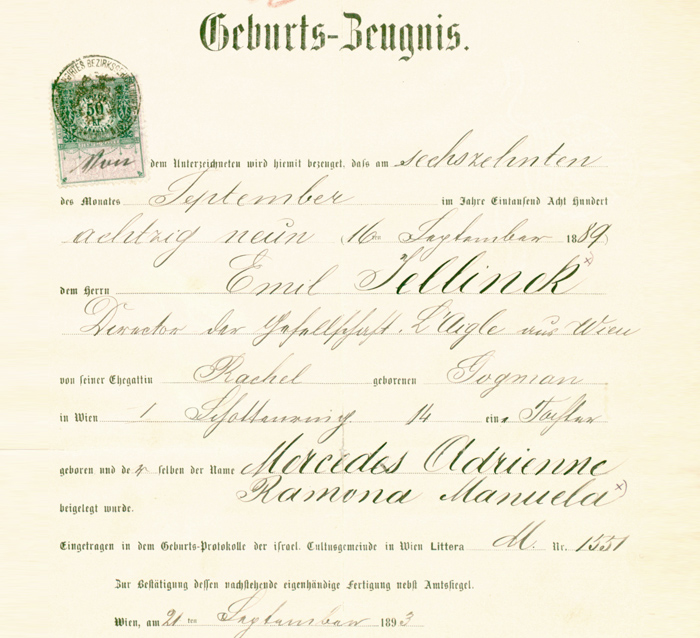 Geburts-Zeugnis.
50
Von dem Unterzeichneten wird hiemit bezeuget, daß am sechszehnten
des Monates September im Jahre Eintausend Acht Hundert
achtzig neun (16ten September 1889)
dem Herrn Emil Jellinek x)
Director der Gesellschaft L'Aigle aus Wien
von seiner Ehegattin Rachel geborenen Gogman
in Wien 1 Schottenring 14 eine Tochter
geboren und der selben der Name Mercedes Adrienne
Ramona Manuela x)
beigelegt wurde.
Eingetragen in dem Geburts-Protokolle der israel. Cultusgemeinde in Wien Littera M. Nr. 1551
Zur Bestätigung dessen nachstehende eigenhändige Fertigung nebst Amtssiegel.
Wien, am 21ten September 1893